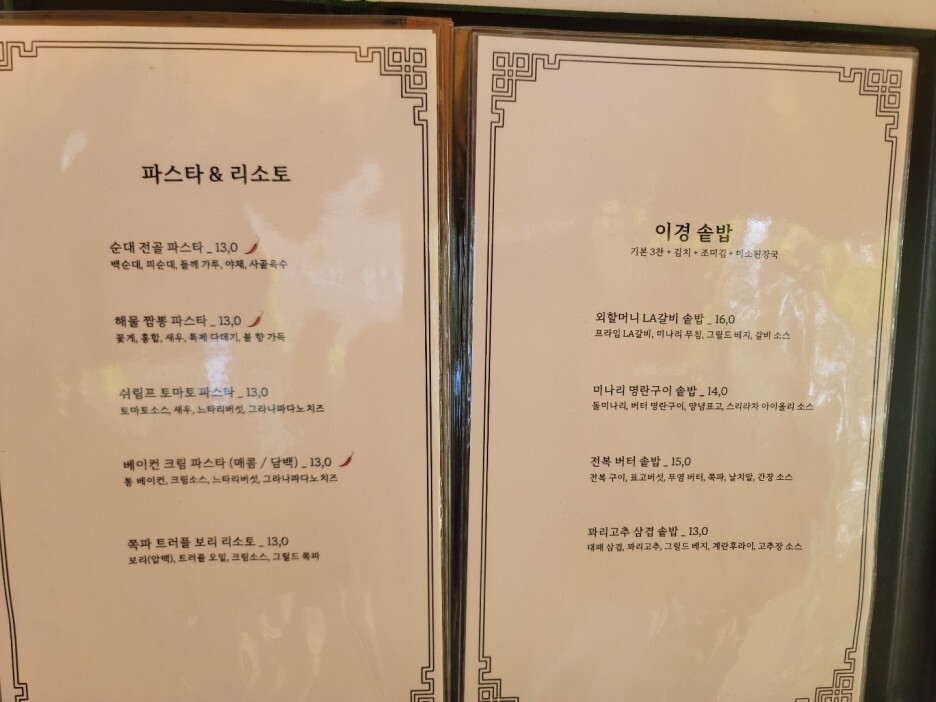 파스타 & 리소토
순대 전골 파스타 _ 13,0
백순대, 피순대, 들깨 가루, 야채, 사골육수
해물 짬뽕 파스타 _ 13,0
꽃게, 홍합, 새우, 특제 다대기, 불 향 가득
쉬림프 토마토 파스타 _ 13,0
토마토소스, 새우, 느타리버섯, 그라나파다노 치즈
베이컨 크림 파스타 (매콤 / 담백) _ 13,0
통 베이컨, 크림소스, 느타리버섯, 그라나파다노 치즈
쪽파 트러플 보리 리소토 _ 13,0
보리(압맥), 트러플 오일, 크림소스, 그릴드 쪽파
이경 솥밥
기본 3찬 + 김치 + 조미김 + 미소된장국
외할머니 LA갈비 솥밥 _ 16,0
프라임 LA갈비, 미나리 무침, 그릴드 베지, 갈비 소스
미나리 명란구이 솥밥 _ 14,0
돌미나리, 버터 명란구이, 양념표고, 스리라차 아이올리 소스
전복 버터 솥밥 _ 15,0
전복 구이, 표고버섯, 무염 버터, 쪽파, 날치알, 간장 소스
꽈리고추 삼겹 솥밥 _ 13,0
대패 삼겹, 꽈리고추, 그릴드 베지, 계란후라이, 고추장 소스